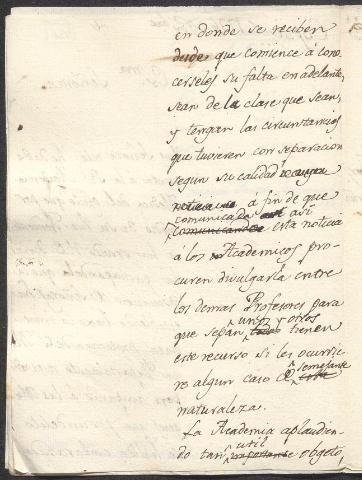 en donde se reciben
desde que comience à cono
cerseles su falta en adelante,
sean de la clase que sean,
y tengan las circunstancias
que tuvieren con separacion
segun su calidad
á fin de que
comunicada asi
comunicandose esta noticia
á los Academicos pro-
curen divulgarla entre
los demas Profesores para
unos y otros
que sepàn todos tienen
este recurso si les ocurrie-
semejante
re algun caso de esta
naturaleza.
La Academia aplaudien-
util
do tan importante obgeto,